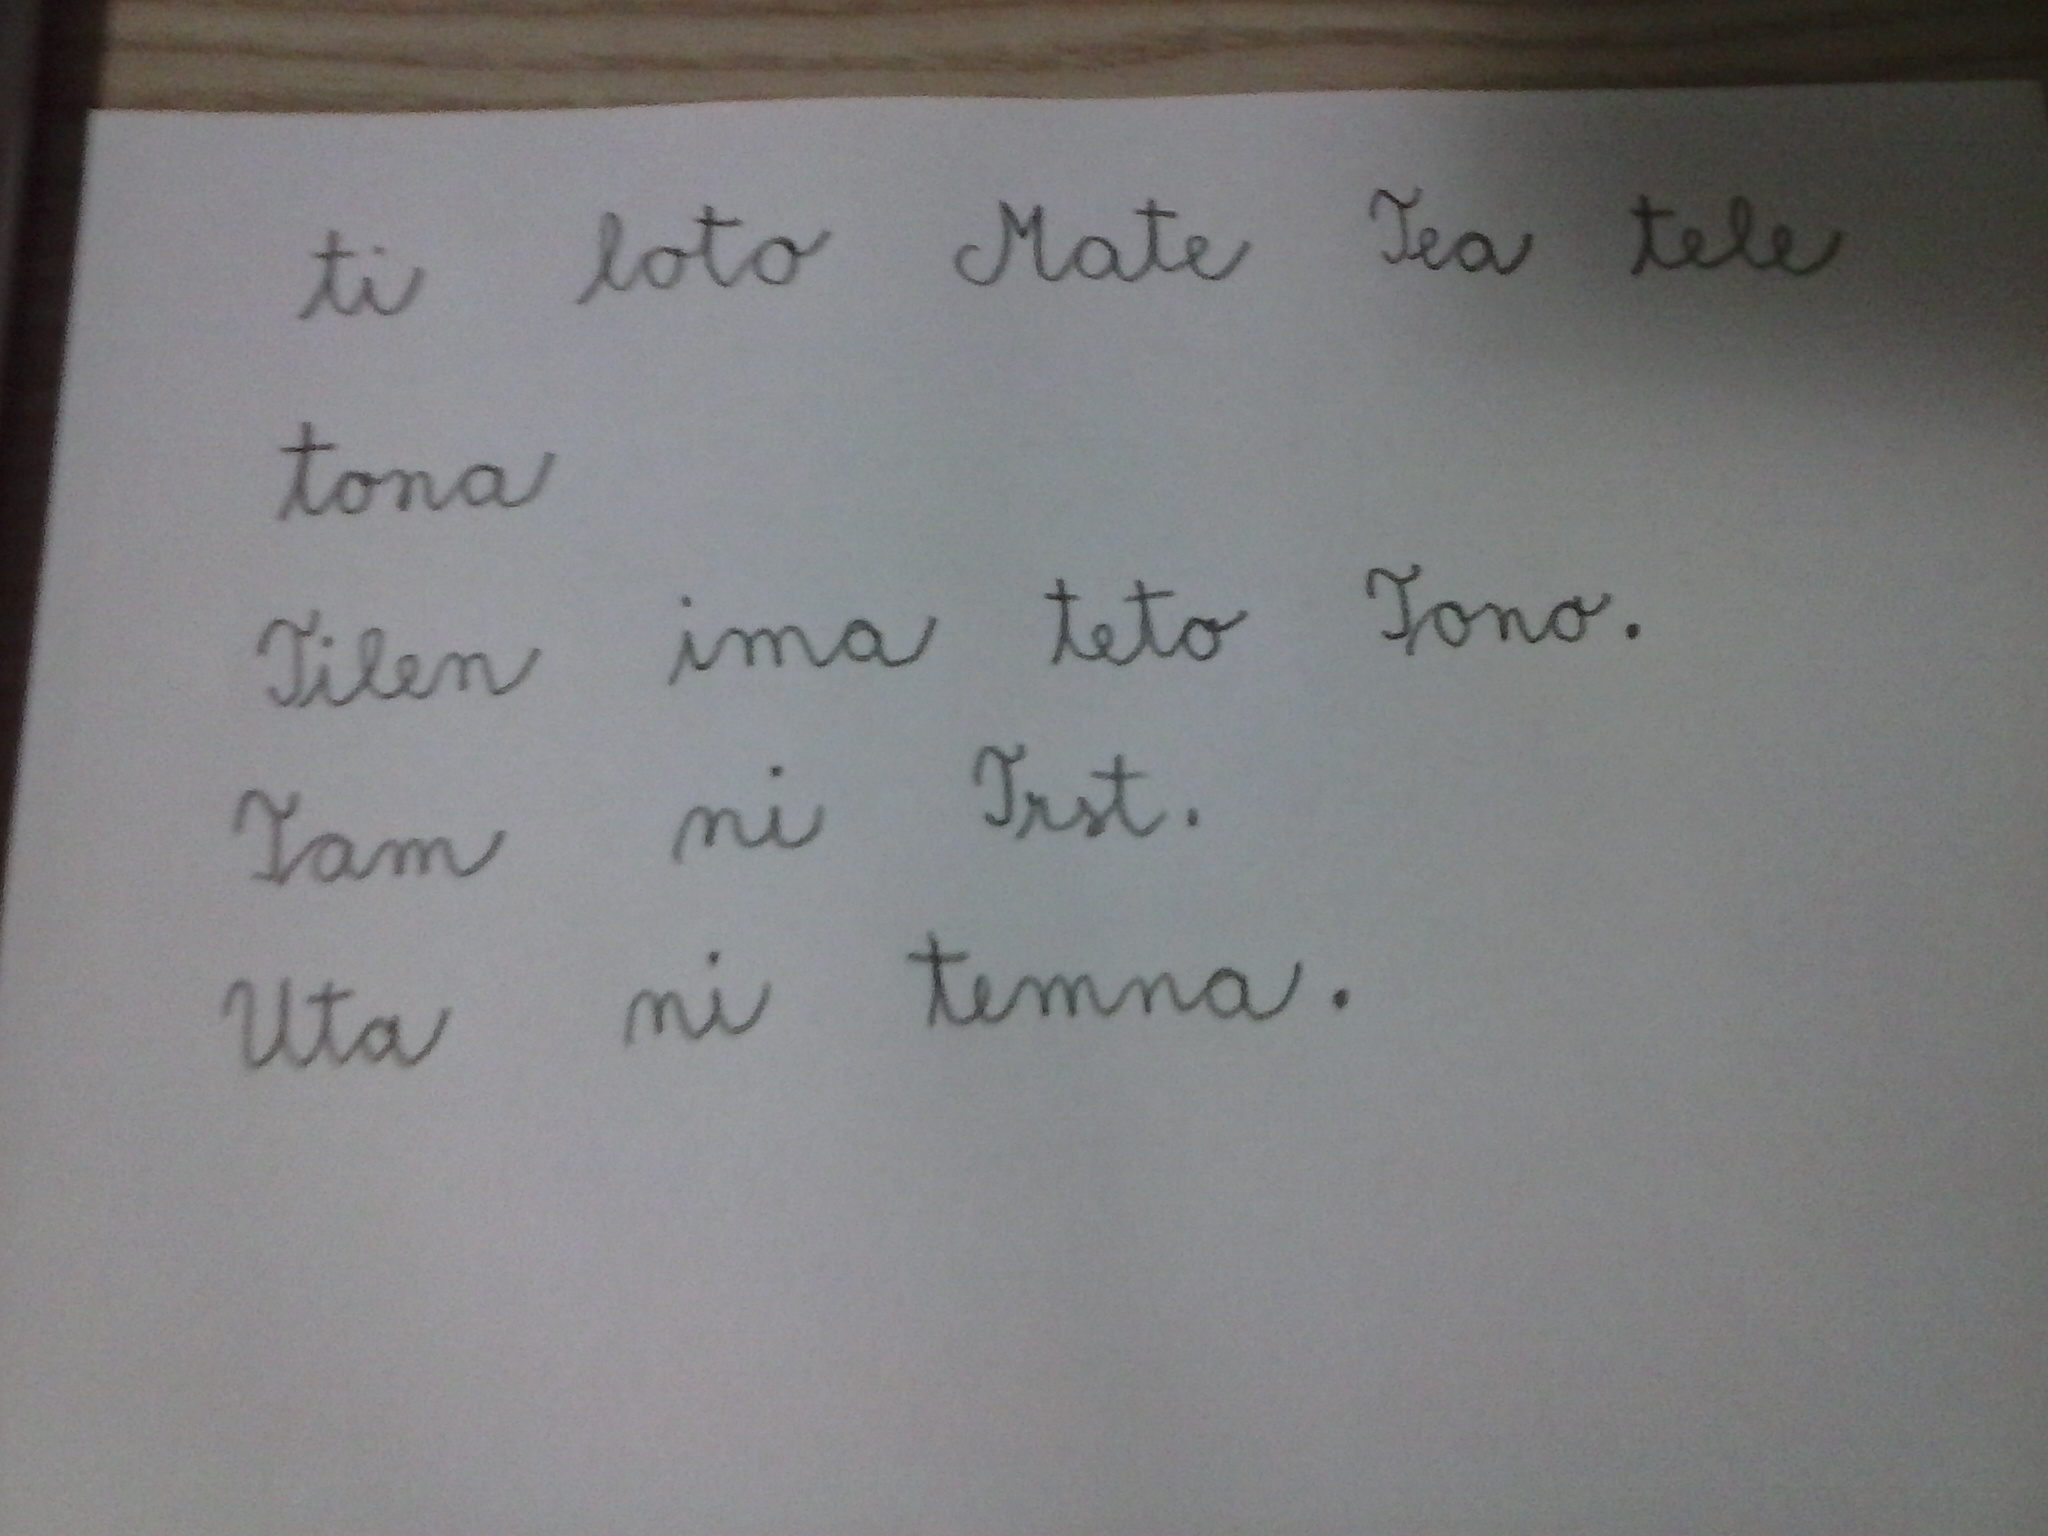 ti loto Mate Tea tele
tona
Tilen ima teto Tono.
Tam ni Trst.
Uta ni temna.